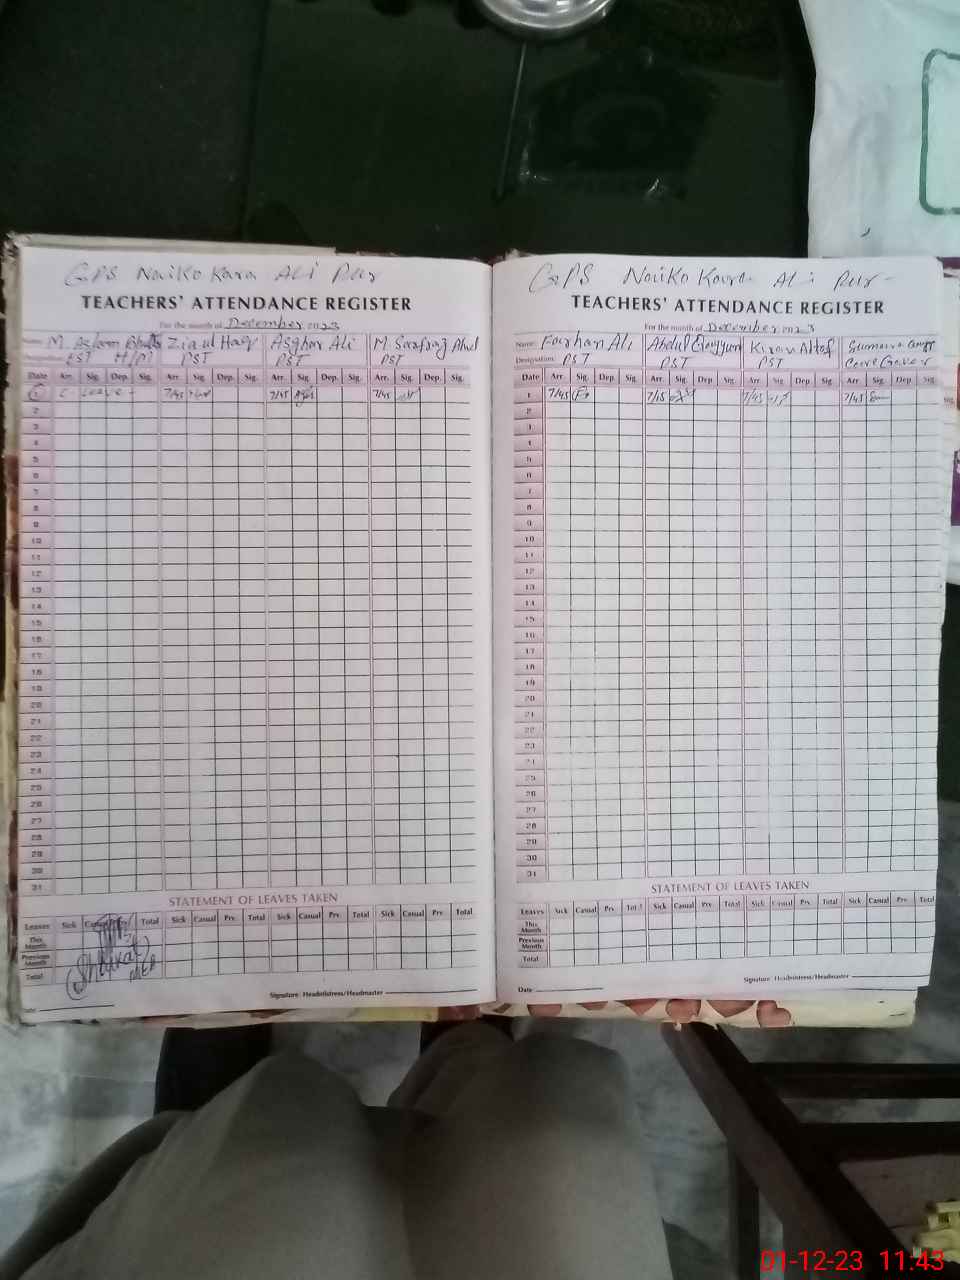 GPS Naiko Kara Ali Pur
TEACHERS' ATTENDANCE REGISTER
For the month of December 2023
Name: M. Aslam Bhatti Zia ul Haq Asghar Ali M. Sarafraz
Designation: EST H/M PST PST PST
Date Arr. Sig. Dep. Sig. Arr. Sig. Dep. Sig. Arr. Sig. Dep. Sig. Arr. Sig. Dep. Sig.
1 C. Leave 7/45 7/45 7/45
2
3
4
5
6
7
8
9
10
11
12
13
14
15
16
17
18
19
20
21
22
23
24
25
26
27
28
29
30
31
STATEMENT OF LEAVES TAKEN
Leaves Sick Casual Total Sick Casual Prv. Total Sick Casual Prv. Total Sick Casual Prv. Total
This Month
Previous Month
Total
Shaukat
MEA
Signature: Headmistress/Headmaster
Date
GPS Naiko Kara Ali Pur
TEACHERS' ATTENDANCE REGISTER
For the month of December 2023
Name: Farhan Ali Abdul Qayyum Kiran Altaf Sumaira
Designation: PST PST PST Care Giver
Date Arr. Sig. Dep. Sig. Arr. Sig. Dep. Sig. Arr. Sig. Dep. Sig. Arr. Sig. Dep Sig.
1 7/45 7/45 7/45 7/45
2
3
4
5
6
7
8
9
10
11
12
13
14
15
16
17
18
19
20
21
22
23
24
25
26
27
28
29
30
31
STATEMENT OF LEAVES TAKEN
Leaves Sick Casual Prv. Total Sick Casual Prv. Total Sick Casual Prv. Total Sick Casual Prv. Total
This Month
Previous Month
Total
Signature: Headmistress/Headmaster
Date
01-12-23 11:43